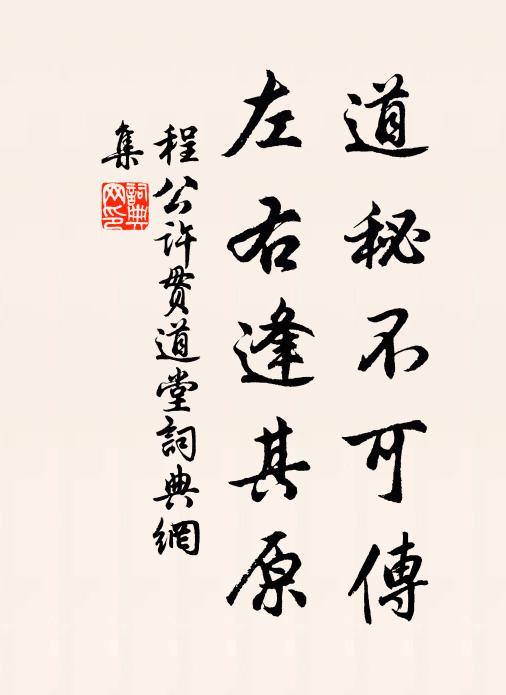 道秘不可傳
左右逢其原
程公許貫道堂詞典網
集
詞典
网印